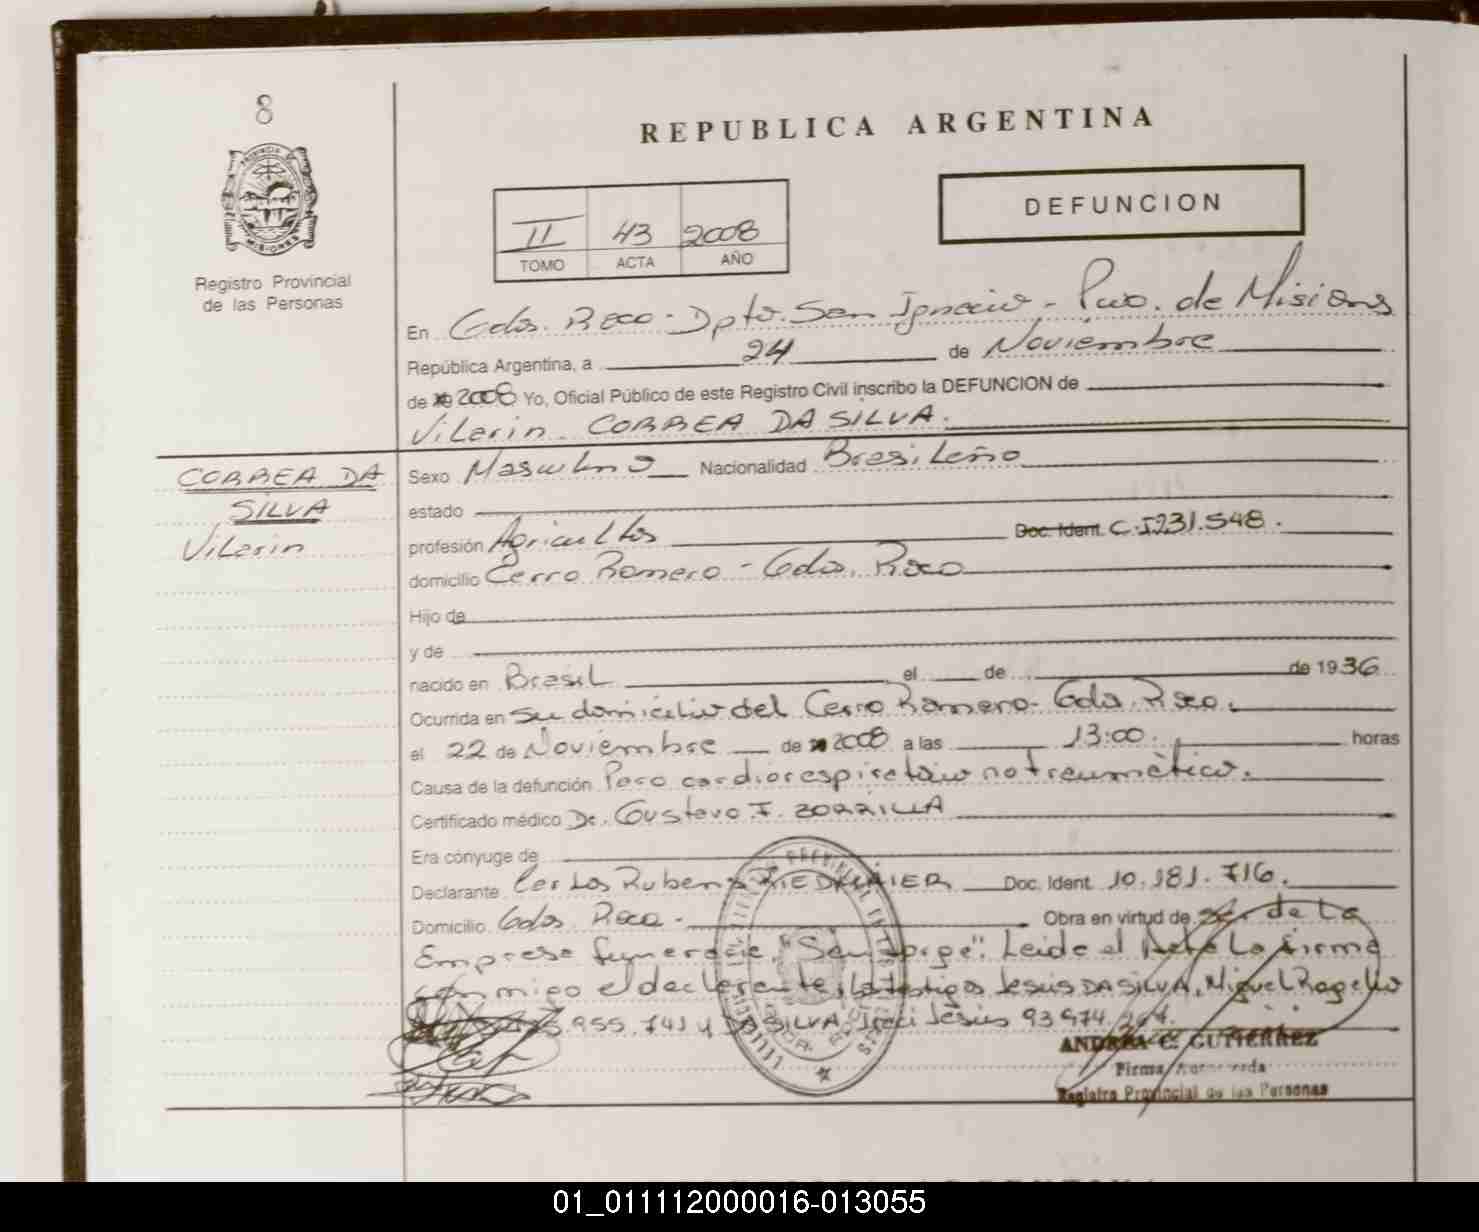 8
PROVINCIA DE
MISIONES
Registro Provincial
de las Personas
REPUBLICA ARGENTINA
II 43 2008
TOMO ACTA AÑO
DEFUNCION
En Gdor. Roca - Dpto. San Ignacio - Pvo. de Misiones
República Argentina, a 24 de Noviembre
de 2008 Yo, Oficial Público de este Registro Civil inscribo la DEFUNCION de
Vilarin CORREA DA SILVA.
CORREA DA
SILVA
Vilarin
Sexo Masculino Nacionalidad Brasileño
estado
profesión Agricultor Doc. Ident. C.I 231.548.
domicilio Cerro Romero - Gdor. Roca
Hijo de
y de
nacido en Brasil el de de 1936
Ocurrida en su domicilio del Cerro Romero - Gdor. Roca.
el 22 de Noviembre de 2008 a las 13:00. horas
Causa de la defunción Paro cardiorespiratorio no traumático.
Certificado médico Dr. Gustavo F. ZORRILLA
Era cónyuge de
Declarante Carlos Ruben RIEDMAIER Doc. Ident. 10.181.716.
Domicilio Gdor. Roca. Obra en virtud de ser de la
Empresa funeraria "San Jorge". Leida el Acta La firma
conmigo el declarante, los testigos Jesus DA SILVA, Miguel Rogelio
955.741 y DA SILVA, Jesús 93974.
ANDREA C. GUTIERREZ
Firma Autorizada
Registro Provincial de las Personas
01_011112000016-013055